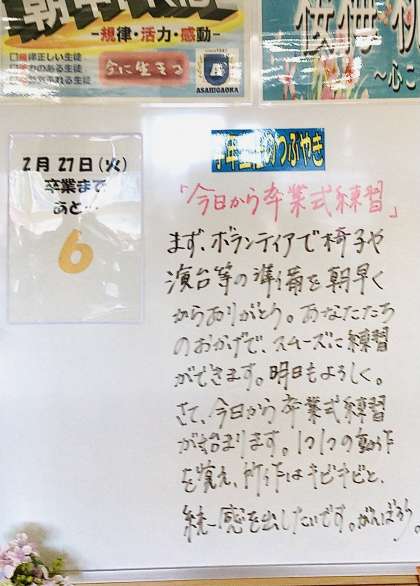 -規律・活力・感動-
規律正しい生徒
今に生きる
ASAHIGAOKA
2月27日(火)
卒業まで
あと…
6
学年主任のつぶやき
「今日から卒業式練習」
まず、ボランティアで椅子や
演台等の準備を朝早く
からありがとう。あなたたち
のおかげで、スムーズに練習
ができます。明日もよろしく。
さて、今日から卒業式練習
が始まります。1つ1つの動作
を覚え、所作はキビキビと、
統一感を出したいです。がんばろう